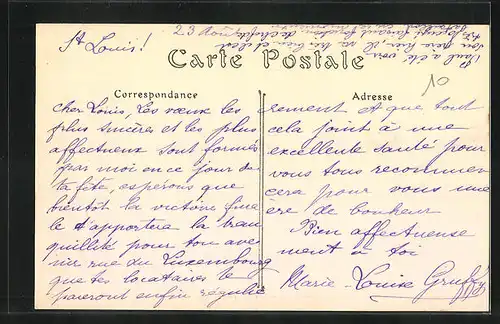 St Louis!
23 Août
Carte Postale
Correspondance
Adresse
10
Cher Louis, Les vœux les
plus sincères et les plus
affectueux sont formés
par moi en ce jour de
ta fête, espérons que
bientôt la victoire finale
te d'apportera la tran
quillité pour ton ave
nir rue du Luxembourg
que tes locataires te
paieront enfin réguliè
rement et que tout
cela joint à une
excellente santé pour
vous tous recommen
cera pour vous une
ère de bonheur
Bien affectueuse
ment à toi
Marie-Louise